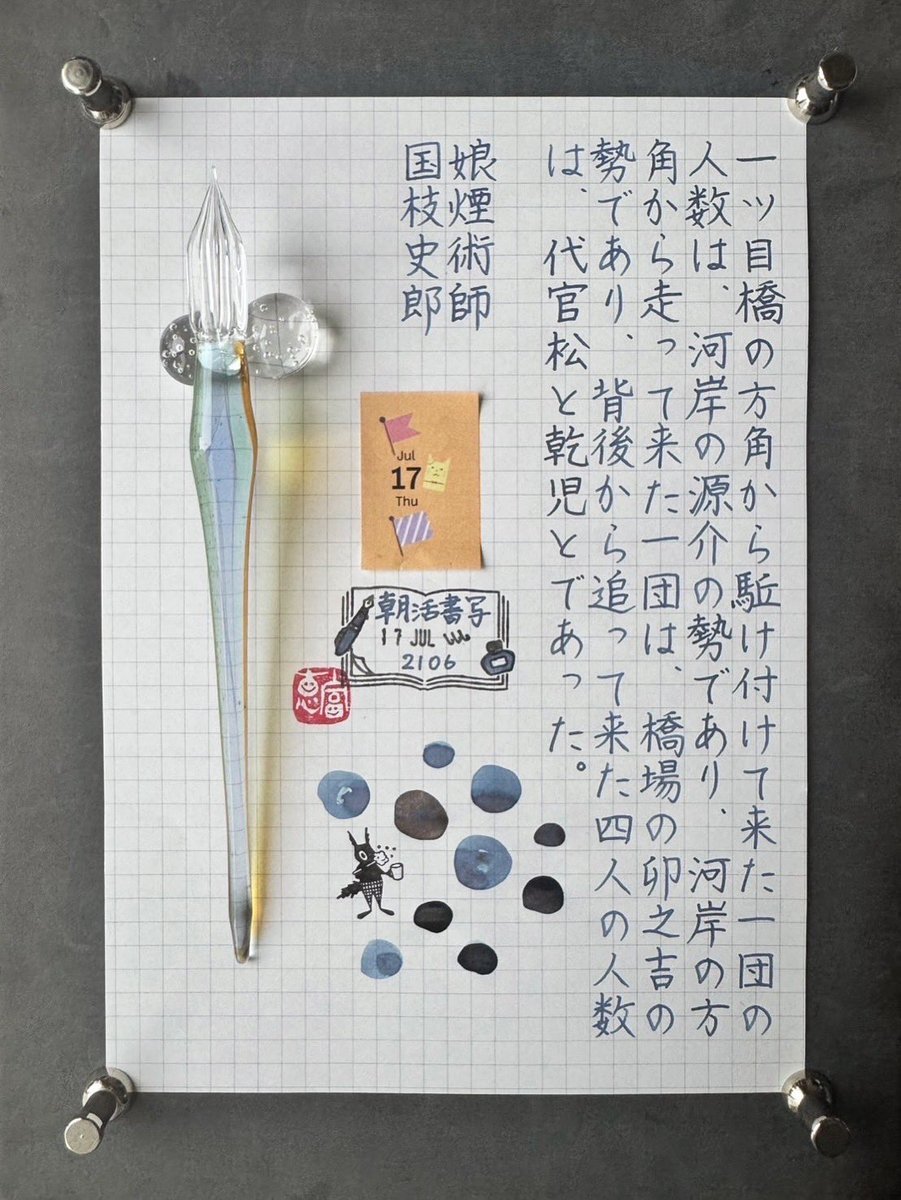 一ッ目橋の方角から駈け付けて来た一団の
人数は、河岸の源介の勢であり、河岸の方
角から走って来た一団は、橋場の卯之吉の
勢であり、背後から追って来た四人の人数
は、代官松と乾児とであった。
娘煙術師
国枝史郎
Jul
17
Thu
朝活書写
17 JUL
2106